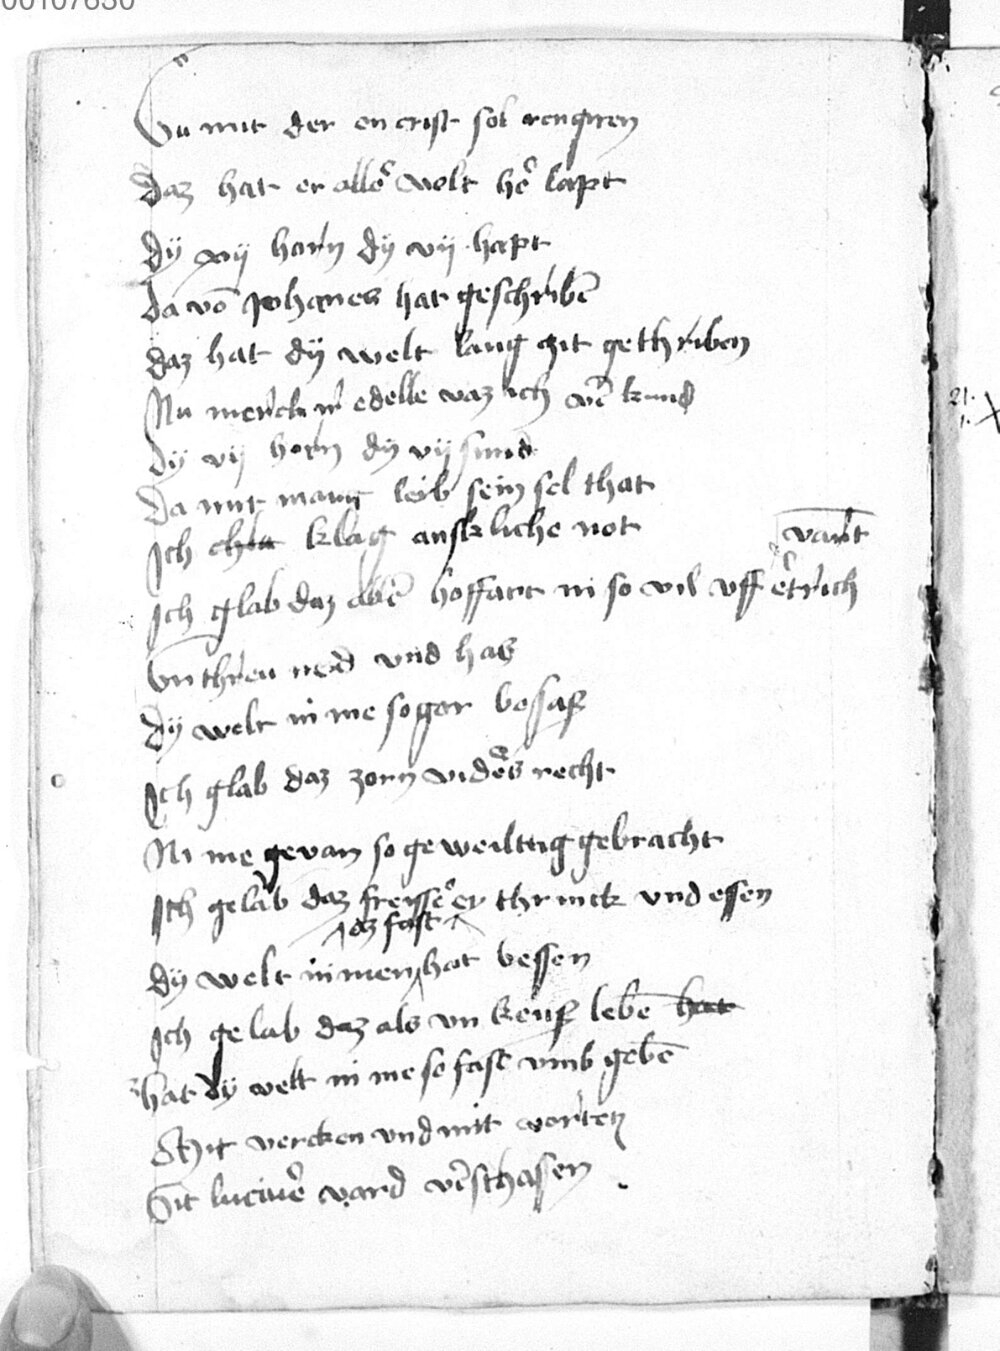 00107630
Vn mit der en crist sol renguren
daz hat er allē volt hē lapt
dy xij horn dy vij hapt
da vō Johanes hat geschribē
daz hat dy welt lang zit gethriben
Nu merck ir edelle vaz ich vē kund
dy vij horn dy vij sund
Da mit mang leib sein sel that
Ich klag anstliche not
vart
Ich glab daz allē hoffart ni so vil vff ertrich
Vnthreu neid vnd has
dy welt ni me so gar besass
Ich glab daz zorn vidēs recht
Ni me gevan so geweilttig gebracht
Ich gelab daz fressē er thrinck vnd essen
daz fast
dy welt ni men hat bessen
Ich gelab daz als vn keusz lebē hat
hat dy welt ni me so fast vmb gebē
Mit vercken vnd mit worten
Sit luciuē vard vēschassen
21.